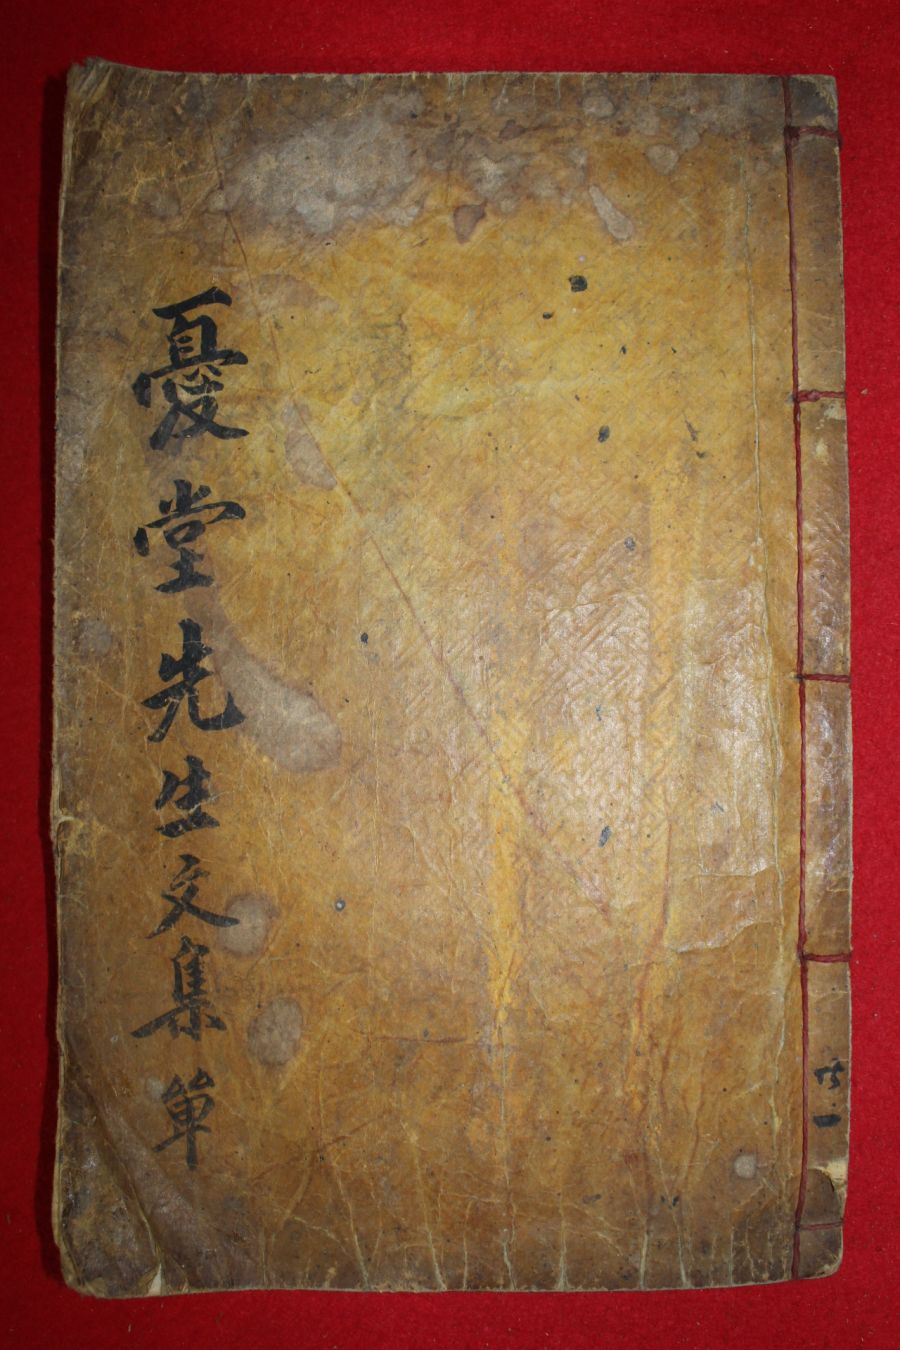 憂堂先生文集 單
共一